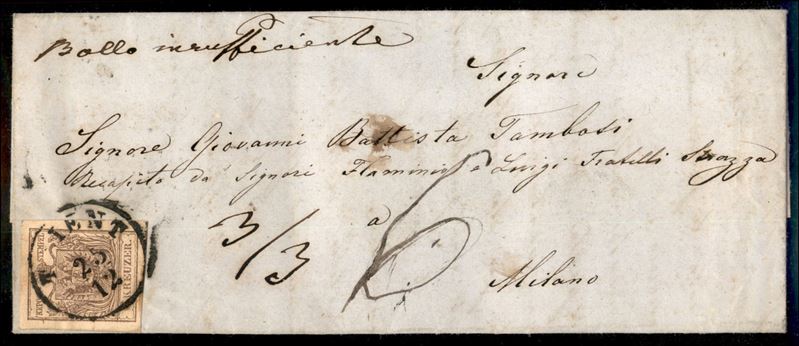 Bollo insufficiente
Signore
Signore Giovanni Battista Tambosi
Recapito da Signori Flaminio e Luigi Fratelli Strazza
a
3/3
6
Milano
TRIENT
25
12
KREUZER.